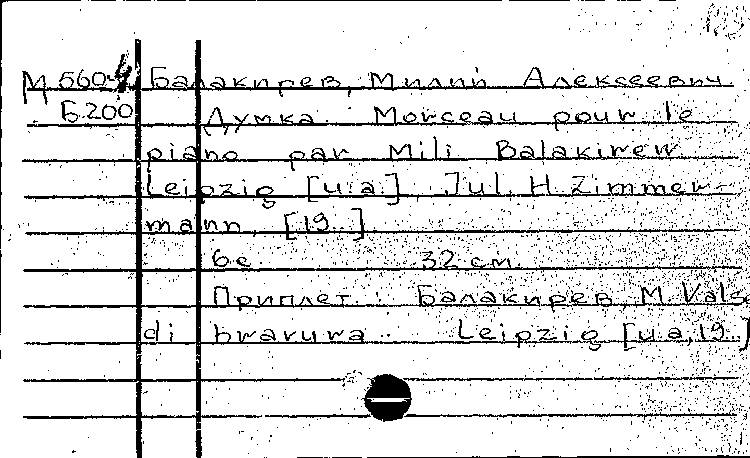 М 560 Балакирев, Милий Алексеевич
Б200 Думка. Morceau pour le
piano par Mili Balakirew.
Leipzig [u.a.], Jul. H. Zimmer-
mann, [19..]
6 с. 32 см.
Приплет.: Балакирев, М. Vals
di bravura. Leipzig [u.a., 19..]